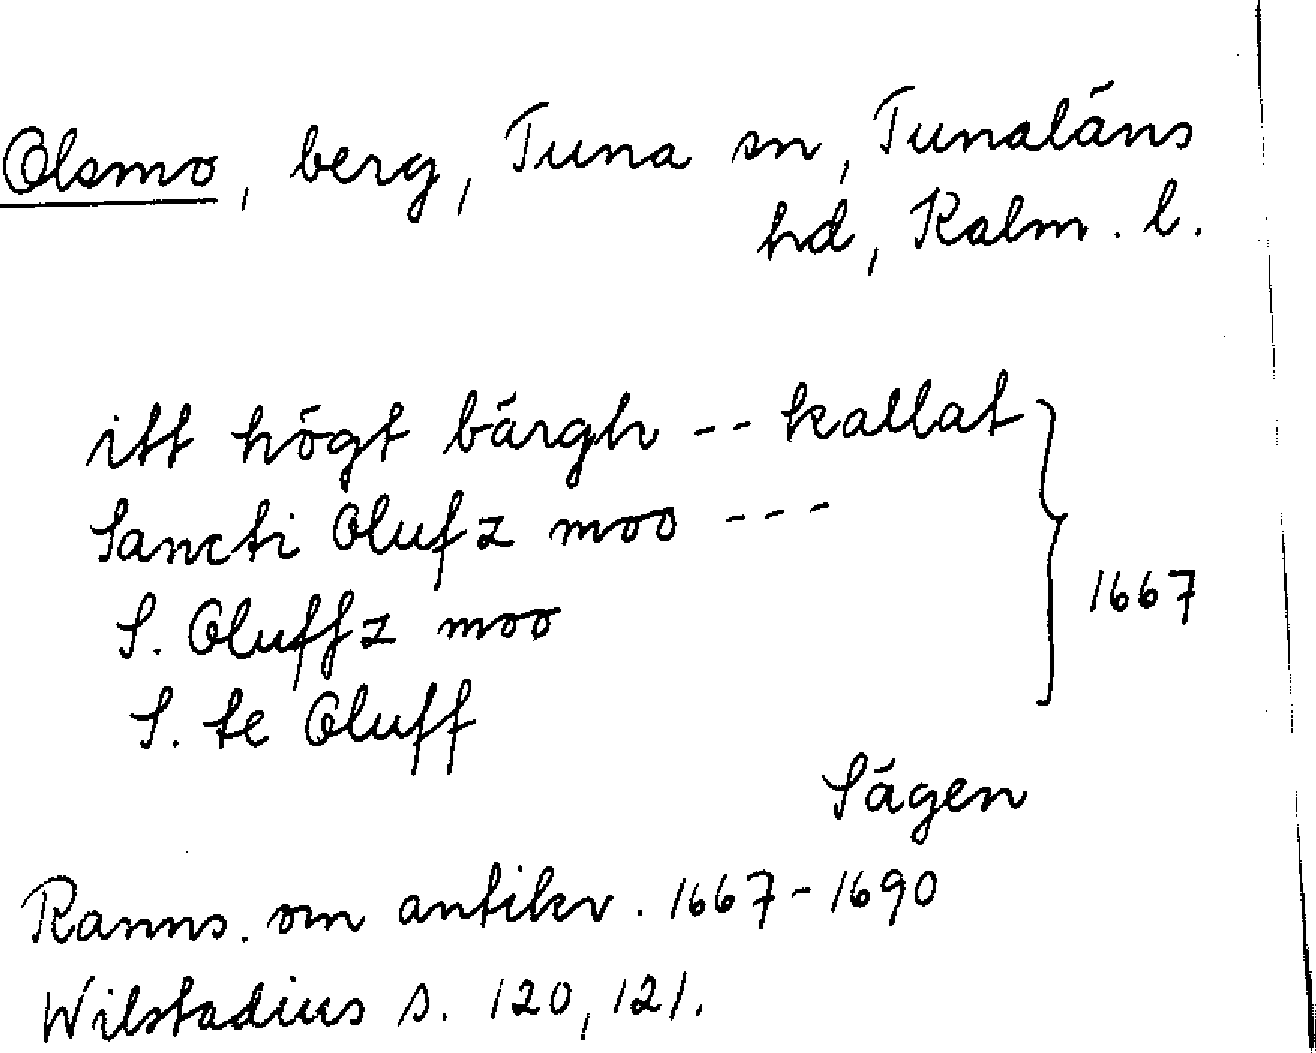 Olsmo, berg, Tuna sn, Tunaläns
hd, Kalm. l.
itt högt bärgh -- kallat
Sancti Olufz moo ---
S. Oluffz moo
1667
S. te Oluff
Sägen
Ranns. om antikv. 1667-1690
Wilstadius s. 120, 121.